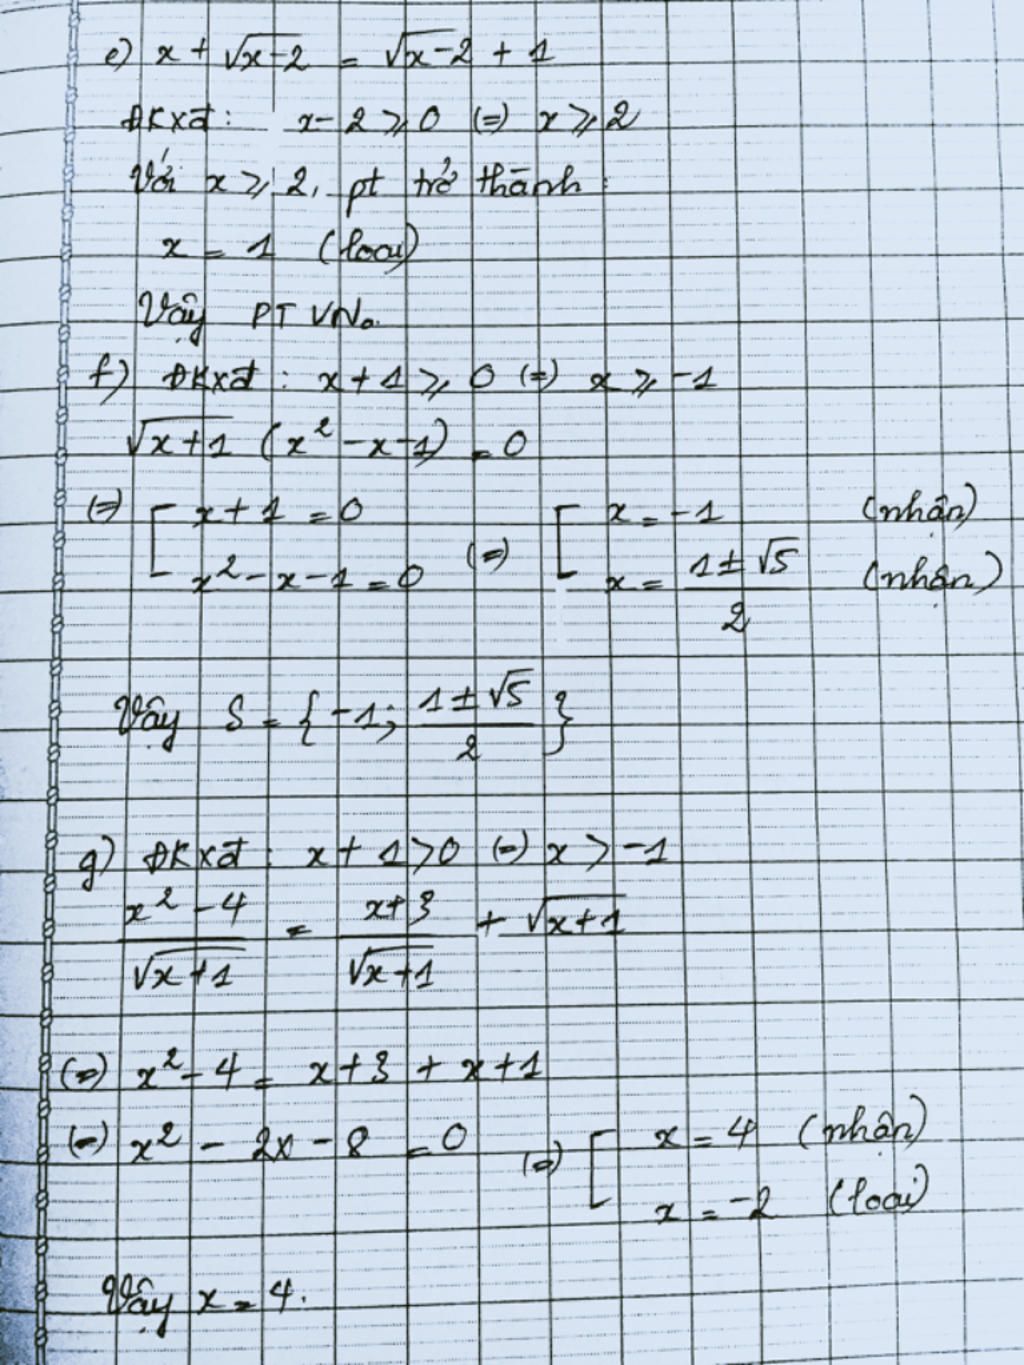 e) x + √x-2 = √x-2 + 1
ĐKXĐ: x - 2 ⩾ 0 (=) x ⩾ 2
Với x ⩾ 2, pt trở thành:
x = 1 (loại)
Vậy PT VN.
f) ĐKXĐ: x + 1 ⩾ 0 (=) x ⩾ -1
√x+1 (x² - x - 1) = 0
(=) [ x + 1 = 0 (=) [ x = -1 (nhận)
x² - x - 1 = 0 x = (1 ± √5)/2 (nhận)
Vậy S = { -1; (1 ± √5)/2 }
g) ĐKXĐ: x + 1 > 0 (=) x > -1
(x² - 4)/√x+1 = (x+3)/√x+1 + √x+1
(=) x² - 4 = x + 3 + x + 1
(=) x² - 2x - 8 = 0 (=) [ x = 4 (nhận)
x = -2 (loại)
Vậy x = 4.